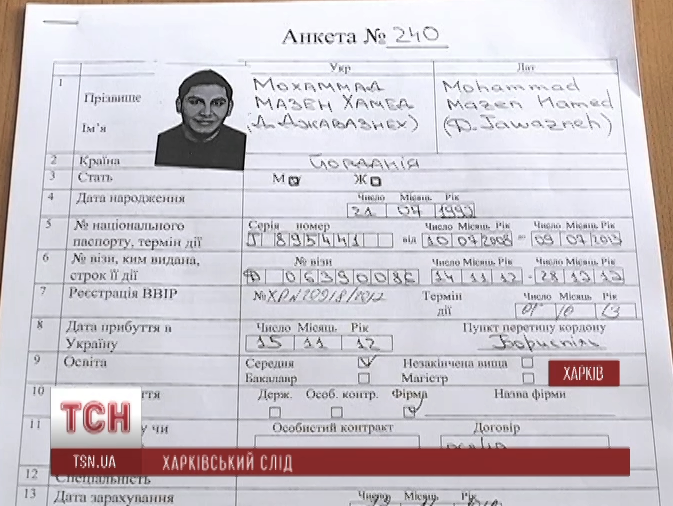 Анкета № 240
Укр Лат
1 Прізвище Мохаммад Mohammad
Мазен Хамед Mazen Hamed
Ім'я (Д. Джавазнех) (D. Jawazneh)
2 Країна Йорданія
3 Стать М Ж
4 Дата народження Число Місяць Рік
21 04
5 № національного паспорту, термін дії Серія номер Число Місяць Рік Число Місяць Рік
895441 від 10 07 2008 до 09 07 2013
6 № візи, ким видана, строк її дії № візи Число Місяць Рік Число Місяць Рік
14 11 12 - 28 12 12
7 Реєстрація ВВІР № Термін дії Число Місяць Рік
8 Дата прибуття в Україну Число Місяць Рік Пункт перетину кордону
15 11 12 Бориспіль
9 Освіта Середня Незакінчена вища
Бакалавр Магістр
ХАРКІВ
10 Держ. Особ. контр. Фірма Назва фірми
11 чи Особистий контракт Договір
ТСН
TSN.UA ХАРКІВСЬКИЙ СЛІД
12 Спеціальність
13 Дата зарахування Число Місяць Рік